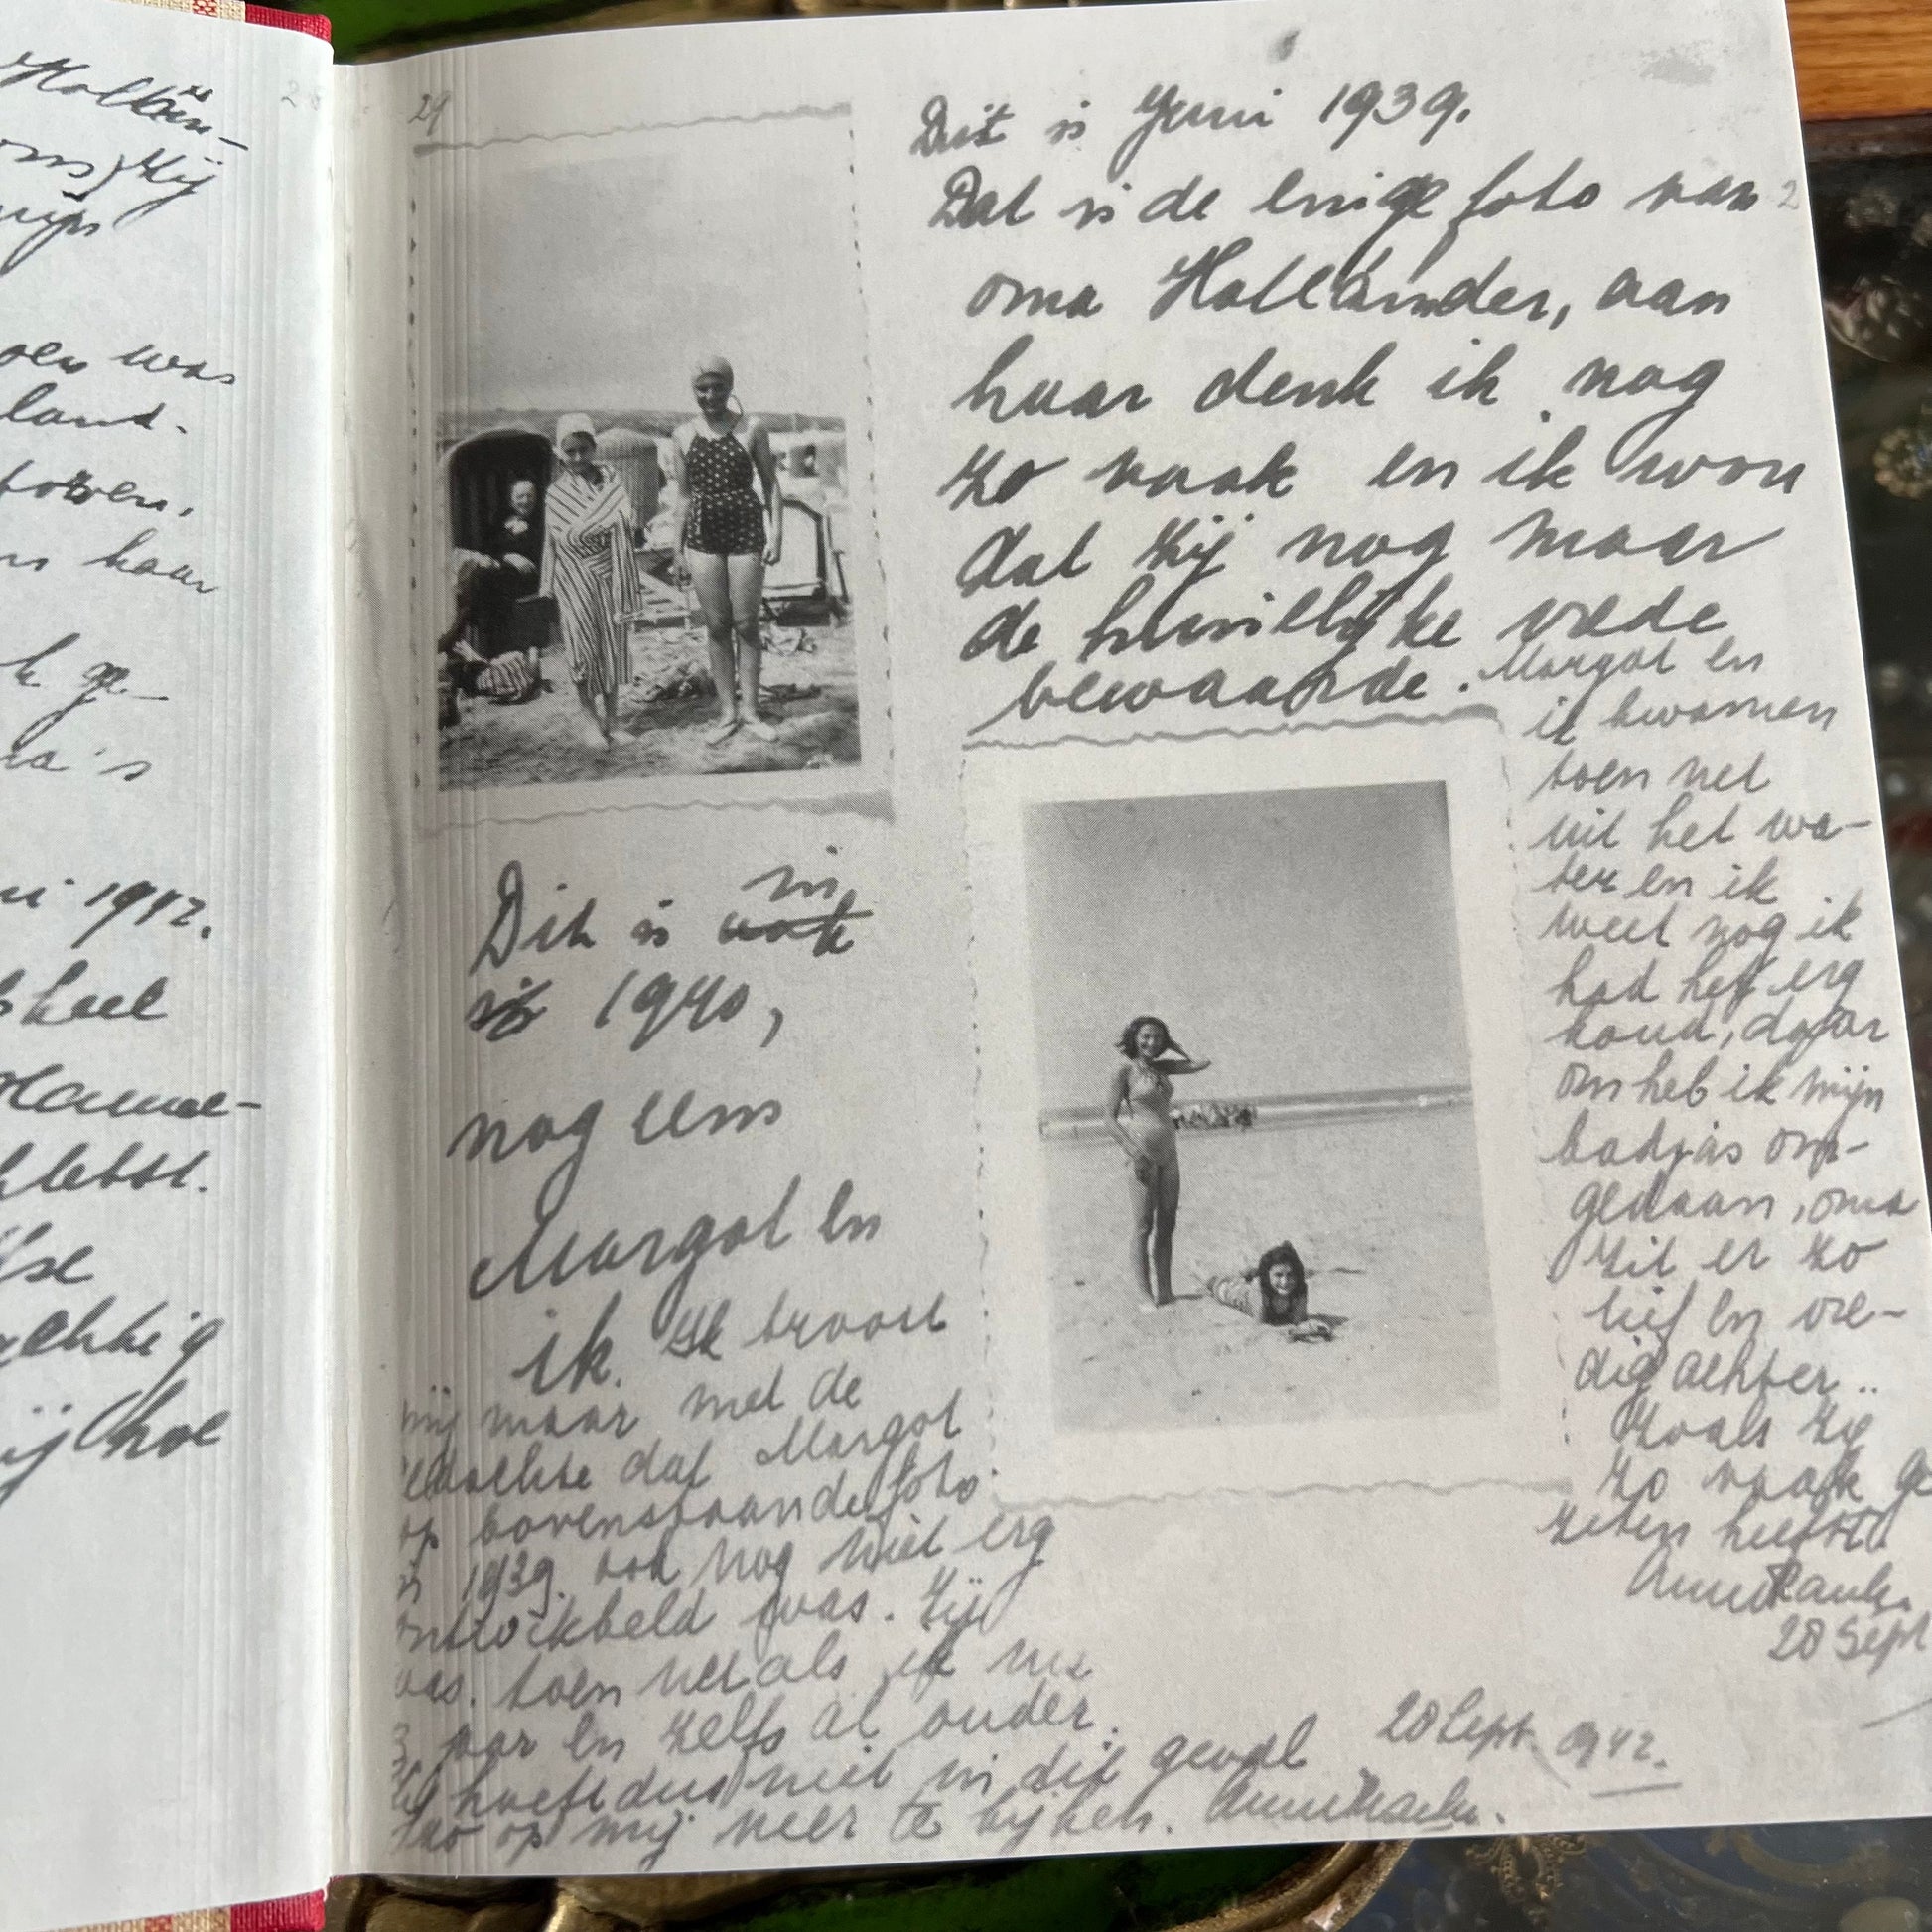 Hollän-
ons) Hij
oen was
land.
haar
k ge-
ma's
ni 1942.
24
Dit is Juni 1939.
Dat is de enige foto van
oma Holländer, aan
haar denk ik nog
zo vaak en ik wou
dat zij nog maar
de huiselijke vrede
bewaarde.
Margot en
ik kwamen
toen net
uit het wa-
ter en ik
weet nog ik
had het erg
koud, daar
om heb ik mijn
badjas om-
gedaan, oma
zit er zo
lief en vre-
dig achter..
Zoals zij
zo vaak ge
zeten heeft.
Anne Frank.
28 Sept
Dit is in
1940,
nog eens
Margot en
ik. Ik troost
mij maar met de
edachte dat Margot
op bovenstaande foto
in 1939. ook nog niet erg
ontwikkeld was. Zij
was. toen net als ik nu
3 jaar en zelfs al ouder.
Zij hoeft dus niet in dit geval
zo op mij neer te kijken. Anne Frank.
28 Sept. 1942.